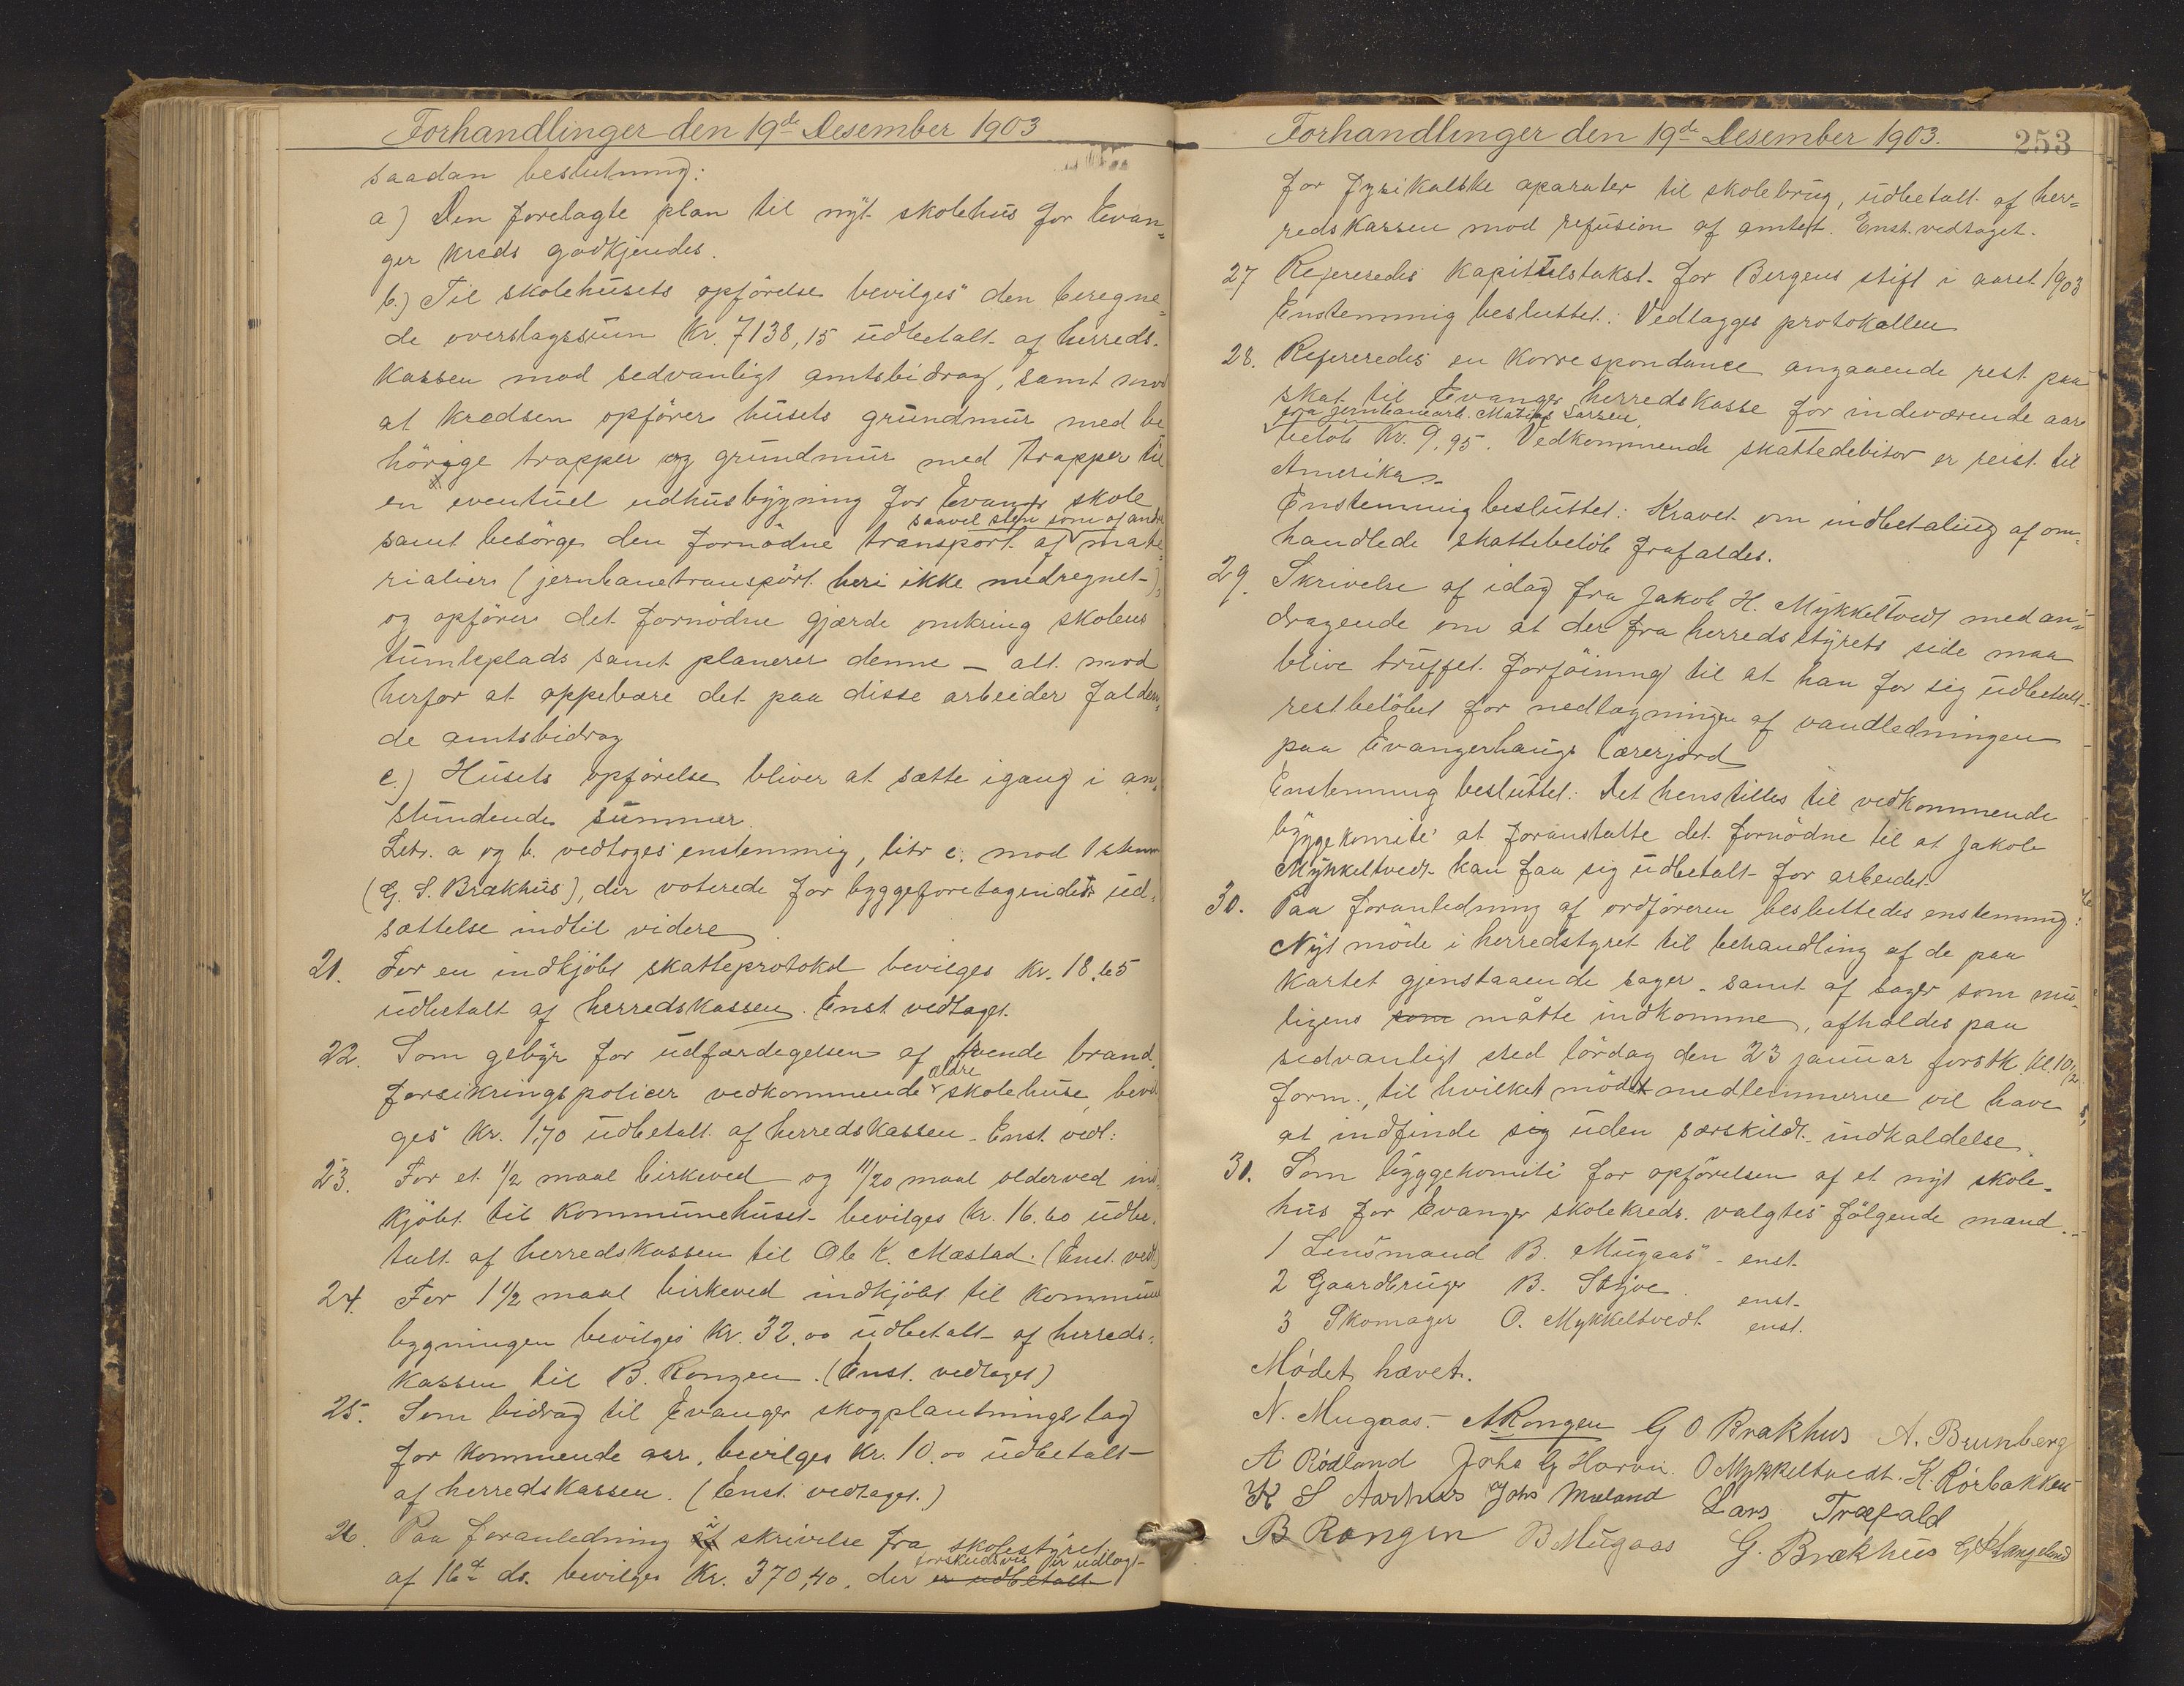 Forhandlinger den 19de Desember 1903
saadan beslutning:
a) Den forelagte plan til nyt skolehus for Evan=
ger kreds godkjendes.
b.) Til skolehusets opförelse bevilges den beregne=
de overslagssum Kr. 7138,15 udbetalt af herreds-
kassen mod sedvanligt amtsbidrag, samt mod
at kredsen opförer husets grundmur med be
hörige trapper og grundmur med trapper til
en eventuel udhusbygning for Evanger skole
saavel sten som af andre
samt besörge den fornödne transport af mate=
rialier (jernbanetransport heri ikke medregnet-),
og opförer det fornödne gjærde omkring skolens
tumleplads samt planerer denne — alt mod
herfor at oppebære det paa disse arbeider falden,
de amtsbidrag
c.) Husets opförelse bliver at sætte igang i an,
stundende sommer.
Letr. a og b. vedtoges enstemmig, litr c. mod 1 stemme
(G. S. Brækhus), der voterede for byggeforetagendets ud=
sættelse indtil videre
21. For en indkjöbt skatteprotokol bevilges kr. 18.65
udbetalt af herredskassen. Enst. vedtaget.
22. Som gebyr for udfærdegelsen af tvende brand,
ældre
forsikringspolicer vedkommende skolehuse, bevil
ges Kr. 1,70 udbetalt af herredskassen. Enst. vedt:
23. For et 1/2 maal birkeved og 11/20 maal olderved ind,
kjöbt til Kommunehuset bevilges Kr. 16.60 udbe,
talt af herredskassen til Ole K. Mæstad. (Enst. vedt)
24. For 1 1/2 maal birkeved indkjöbt til Kommune
bygningen bevilges Kr. 32.00 udbetalt af herreds=
kassen til B. Rongen. (Enst. vedtaget)
25. Som bidrag til Evanger skogplantningslag
for kommende aar, bevilges Kr. 10.00 udbetalt
af herredskassen. (Enst. vedtaget.)
26. Paa foranledning af skrivelse fra skolestyret
forskudsvis er udlagt-
af 16de ds. bevilges Kr. 370,40, der er udbetalt
Forhandlinger den 19de Desember 1903.
253
for fysikalske aparater til skolebrug, udbetalt af her=
redskassen mod refusion af amtet. Enst. vedtaget.
27 Refereredes kapitelstakst for Bergens stift i aaret 1903
Enstemmig besluttet: Vedlægges protokollen
28. Refereredes en korrespondance angaaende rest paa
skat til Evanger herredskasse for indeværende aar
fra jernbanearb. Matias Larsen,
belöb Kr. 9,95. Vedkommende skattedebitor er reist til
Amerika.
Enstemmig besluttet: Kravet om indbetaling af om=
handlede skattebelöb frafaldes.
29. Skrivelse af idag fra Jakob H. Mykkeltvedt med an=
dragende om at der fra herredsstyrets side maa
blive truffet forföining til at han for sig udbetalt
restbelöbet for nedlægningen af vandledningen
paa Evangerhaugs lærerjord
Enstemmig besluttet: Det henstilles til vedkommende
byggekomité at foranstalte det fornödne til at Jakob
Mykkeltvedt kan faa sig udbetalt for arbeidet.
30. Paa foranledning af ordföreren besluttedes enstemmig:
Nyt möde i herredstyret til behandling af de paa
kartet gjenstaaende sager samt af sager som mu-
ligens som måtte indkomme, afholdes paa
sedvanligt sted lördag den 23 januar förstk. kl. 10 1/2
form., til hvilket möde medlemmerne vil have
at indfinde sig uden særskildt indkaldelse.
31. Som byggekomité for opförelsen af et nyt skole-
hus for Evanger skolekreds valgtes fölgende mænd.
1 Lensmand B. Mugaas - enst.
2 Gaardbruger B. Styve enst.
3 Skomager O. Mykkeltvedt enst.
Mödet hævet.
N. Mugaas. A Rongen G O Brakhus A. Brunberg
A Rödland Johs G Horvei O Mykkeltvedt. K. Rörbakken
K S Aarhus Johs Mæland Lars Træfald
B Rongen B Mugaas G. Brækhus G H Langeland